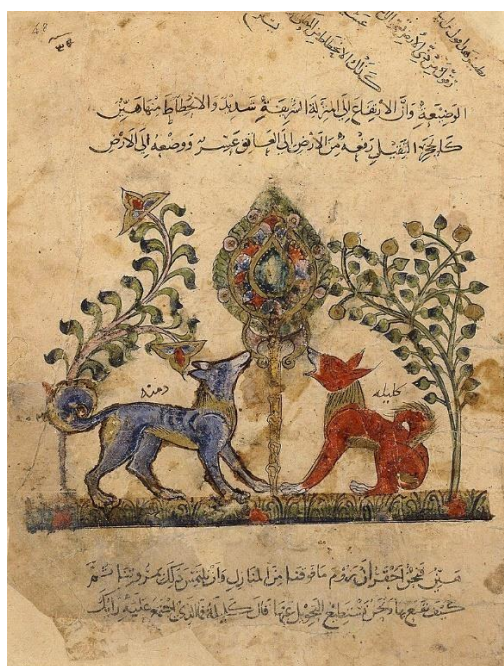 48
كذلك الانحطاط من
الوضيعة وان الارتفاع إلى المنزلة الشريفة شديد والانحطاط منها هين
كالحجر الثقيل رفعه من الأرض إلى العاتق عسر ووضعه إلى الأرض
دمنه
كليله
هين فنحن احق ان نروم ما فوقنا من المنازل وان نلتمس ذلك بمروتنا ثم
كيف نقنع بها ونحن نستطيع التحويل عنها قال كليلة فما الذي اجتمع عليه رايك